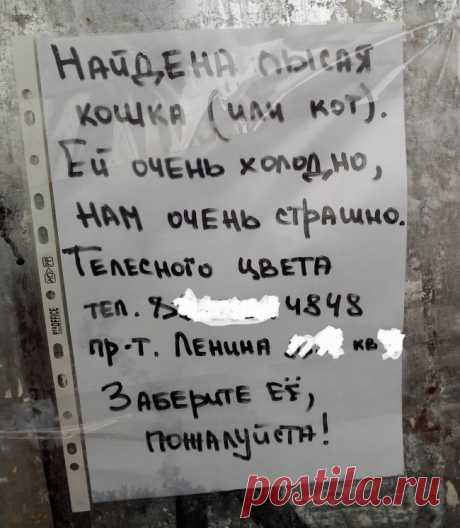 Найдена лысая
кошка (или кот).
Ей очень холодно,
нам очень страшно.
Телесного цвета
тел. 8 4848
пр-т. Ленина кв
Заберите её,
пожалуйста!
OFFICE
postila.ru